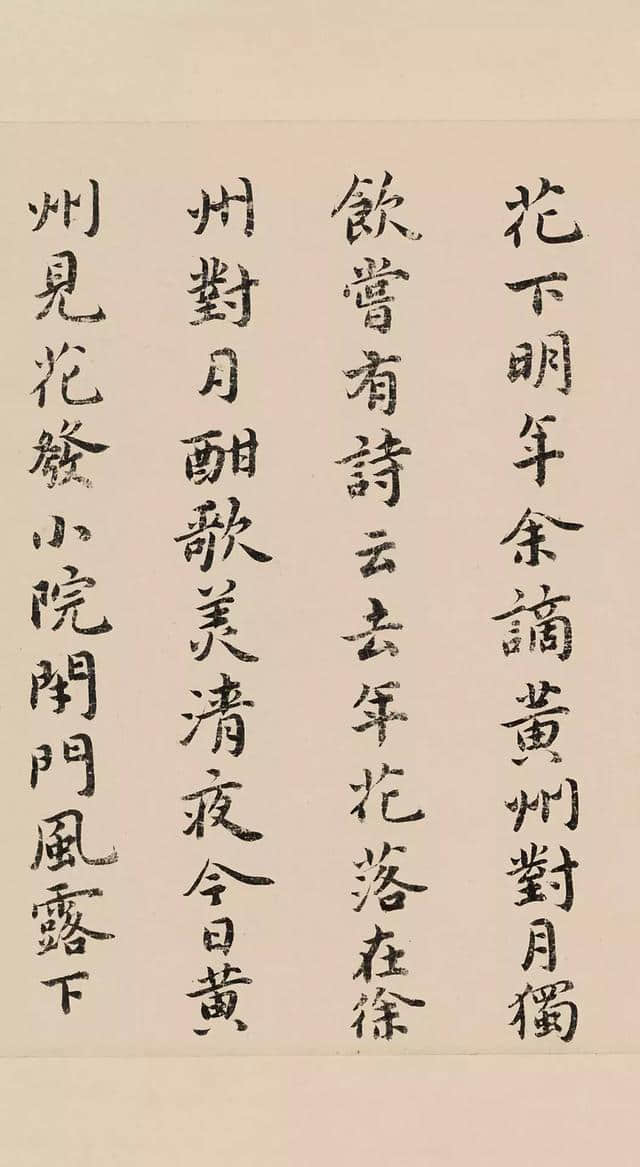 花下明年余謫黃州對月獨
飲嘗有詩云去年花落在徐
州對月酣歌美清夜今日黃
州見花發小院閉門風露下